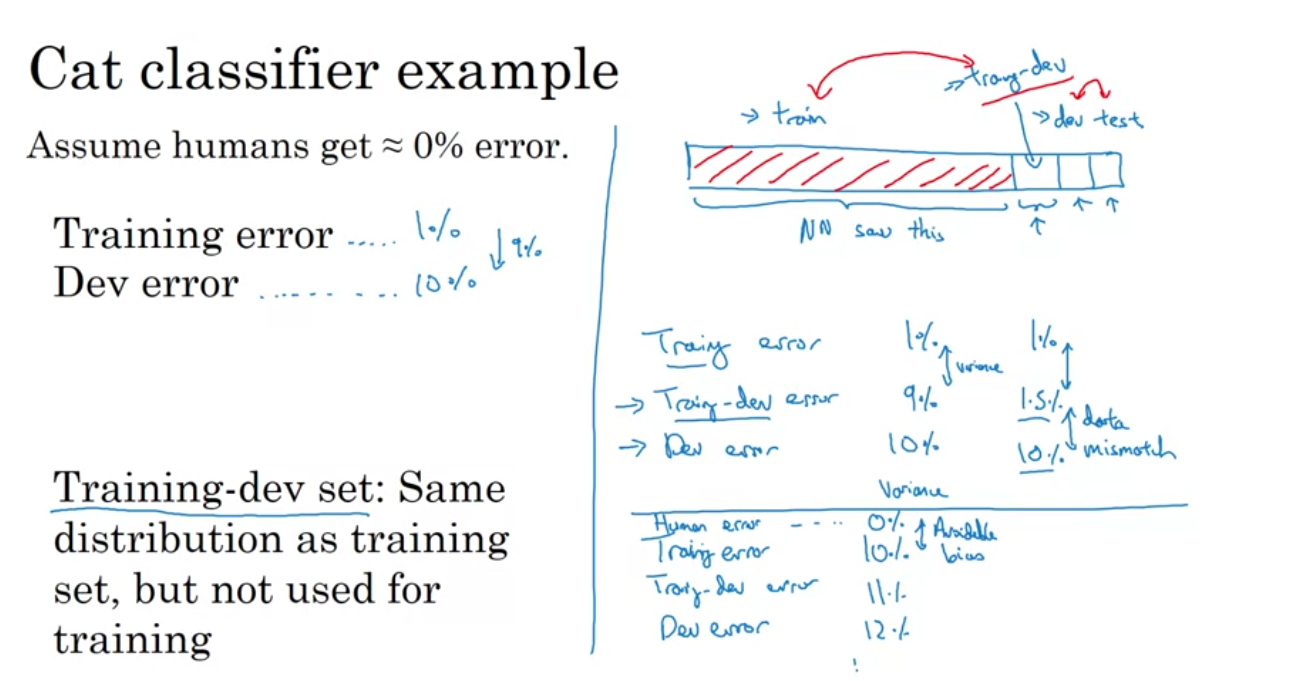 Cat classifier example
Assume humans get ≈ 0% error.
Training error ..... 1%
↓ 9%
Dev error ......... 10%
Training-dev set: Same
distribution as training
set, but not used for
training
→ train
→ traing-dev
→ dev test
NN saw this
Traing error 1% 1%
variance
→ Traing-dev error 9% 1.5%
→ Dev error 10% 10%
data
mismatch
Variance
Human error ---.. 0%
Traing error 10%
Avoidable
bias
Traing-dev error 11%
Dev error 12%